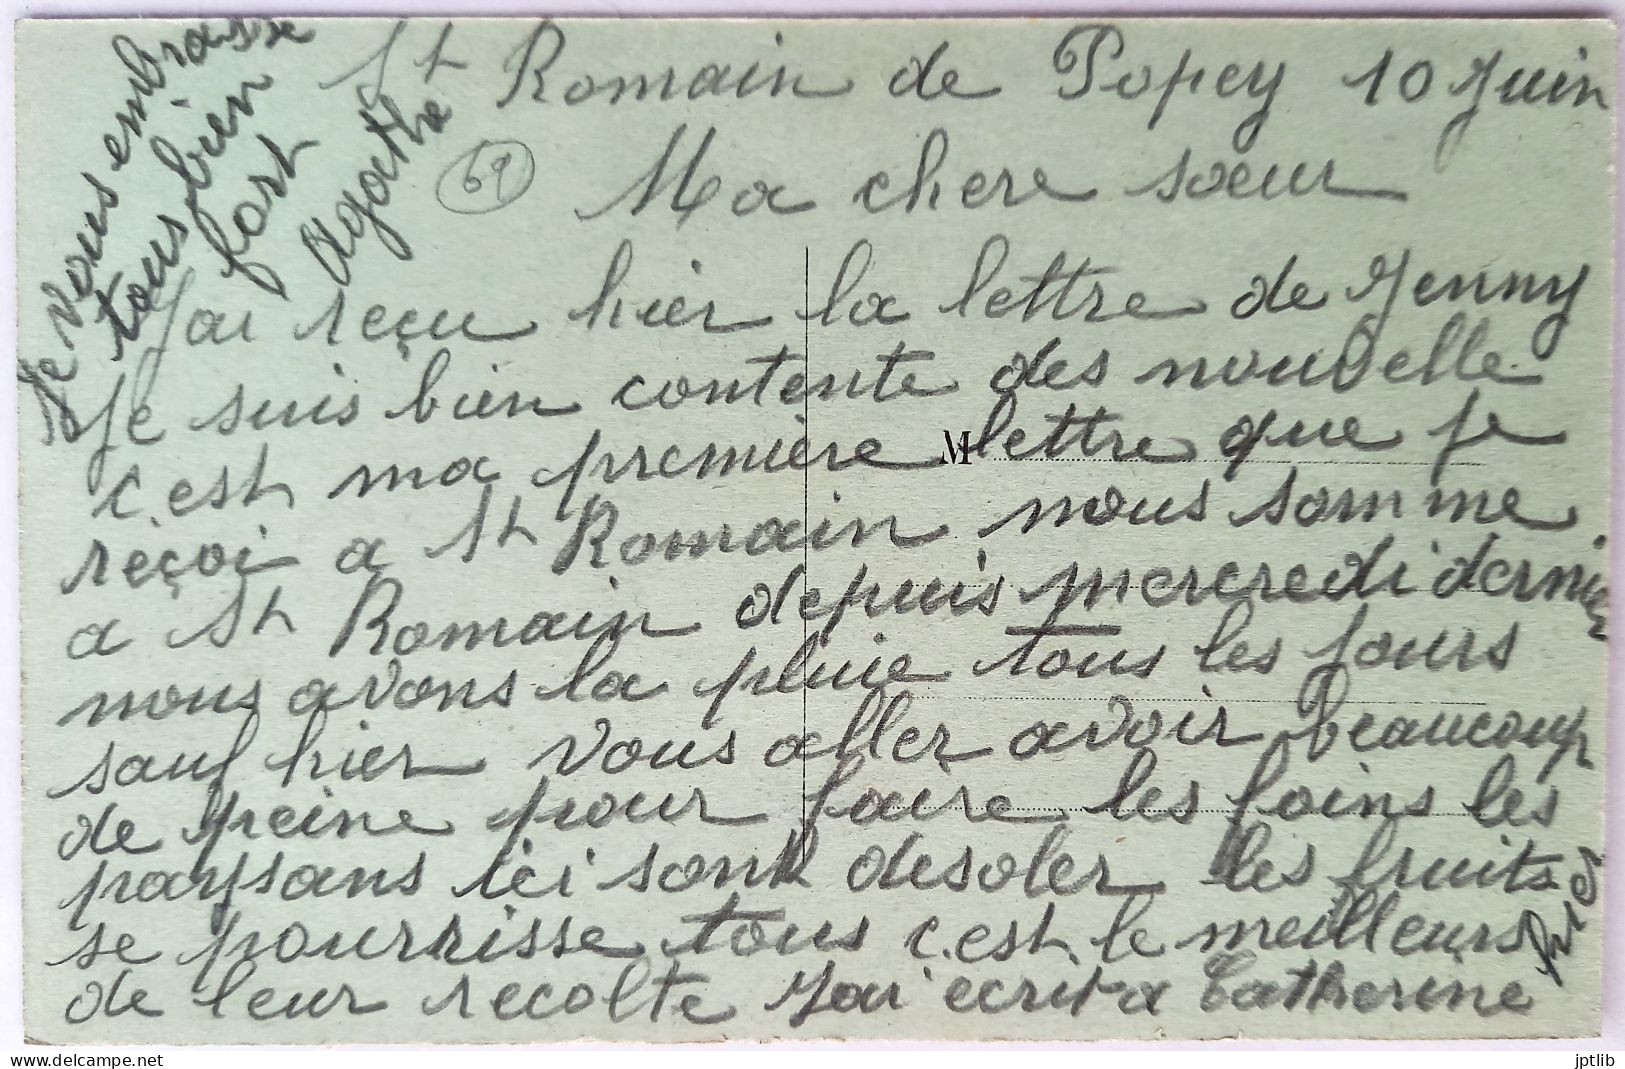 St Romain de Popey 10 Juin
69
Ma chere sœur
J'ai reçu hier la lettre de Jenny
Je suis bien contente des nouvelle
c'est ma première lettre que je
M
reçoi a St Romain nous somme
a St Romain depuis mercredi dernier
nous avons la pluie tous les jours
sauf hier vous aller avoir beaucoup
de peine pour faire les foins les
paysans ici sont desoler les fruits
se pourrisse tous c'est le meilleurs
de leur recolte J'ai ecrit a Catherine
hier
Je vous embrasse
tous bien
fort
Agathe
jptlib
delcampe.net